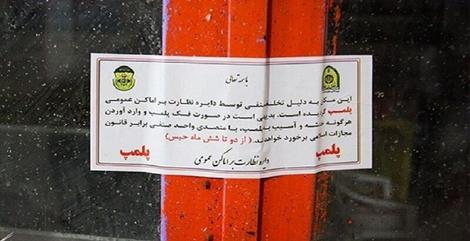 باسمه تعالی
این مکان به دلیل تخلف صنفی توسط دایره نظارت بر اماکن عمومی
پلمپ گردیده است. بدیهی است در صورت فک پلمپ و وارد آوردن
هرگونه خدشه و آسیب به پلمپ، با متصدی واحد صنفی برابر قانون
مجازات اسلامی برخورد خواهد شد. ( از دو تا شش ماه حبس )
پلمپ دایره نظارت بر اماکن عمومی پلمپ